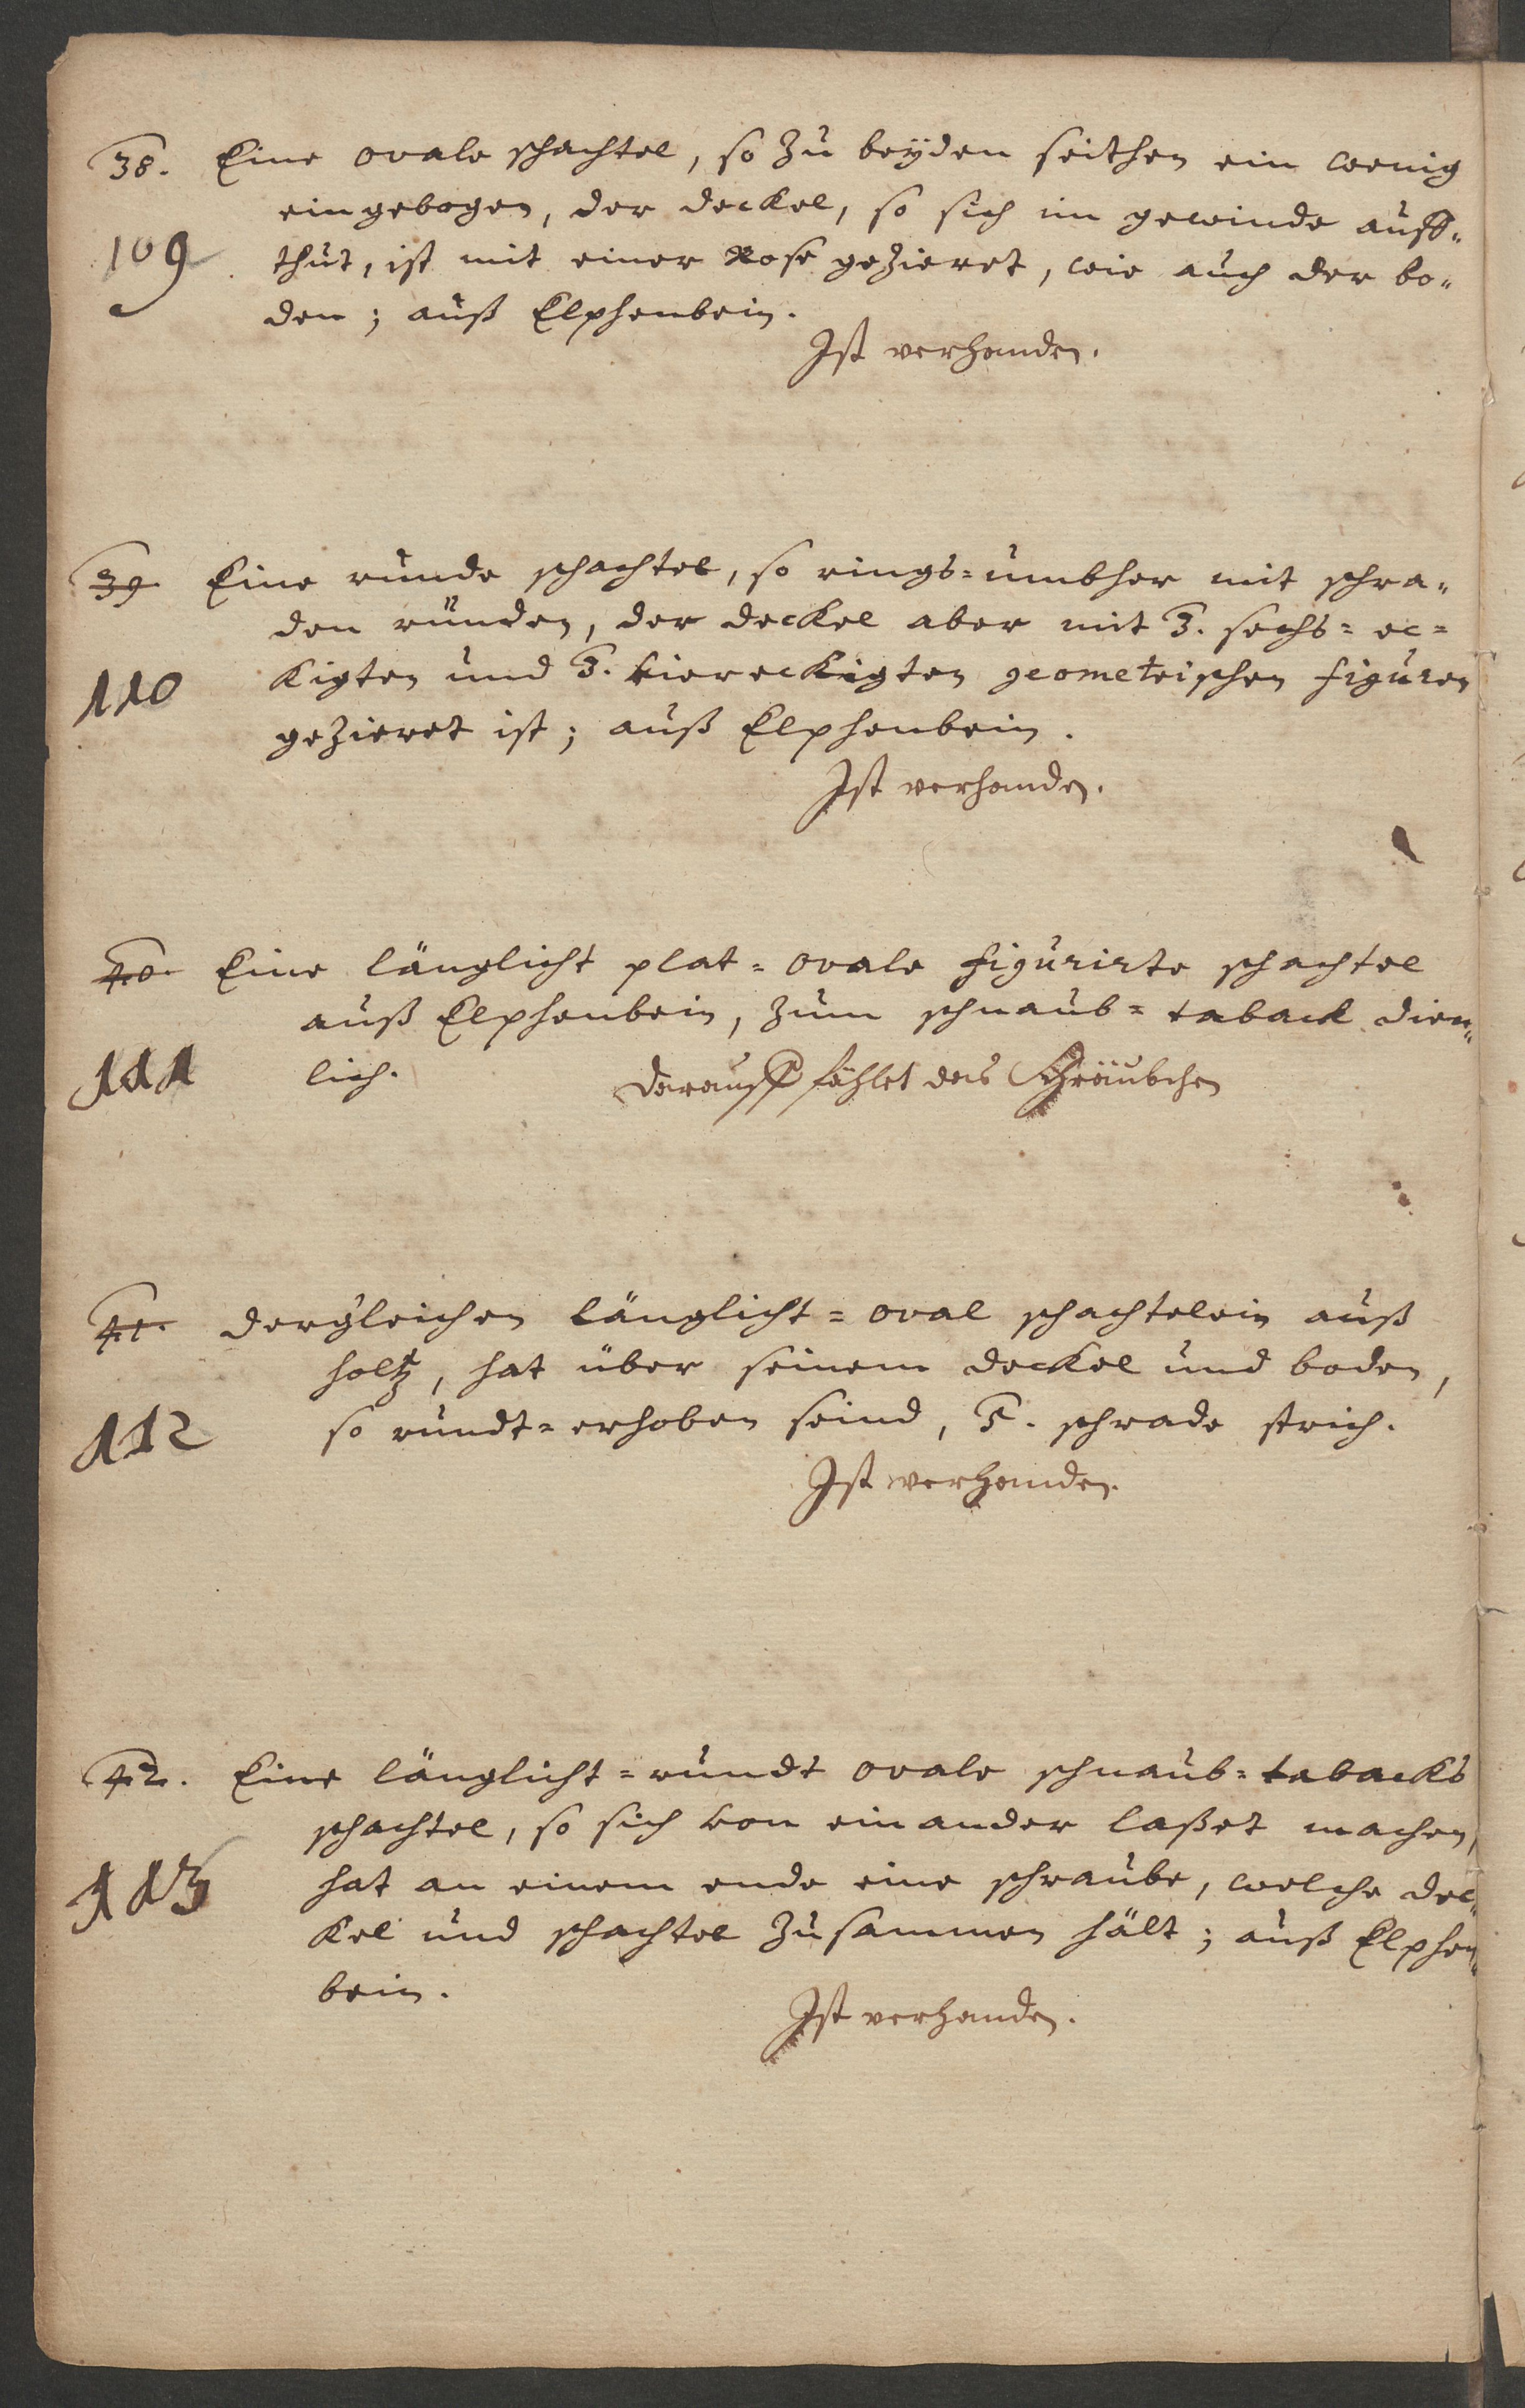 38. Eine ovale schachtel, so zu beÿden seithen ein wenig
eingebogen, der deckel, so sich im gewinde auff-
109 thut, ist mit einer Rose gezieret, wie auch der bo-
den; auß Elphenbein.
Ist verhanden.
39. Eine runde schachtel, so rings=umbher mit schra-
den ründen, der deckel aber mit 3. sechs=ec=
110 kigten und 3. viereckigten geometrischen figuren
gezieret ist; auß Elphenbein.
Ist verhanden.
40. Eine länglicht plat=ovale figurirte schachtel
auß Elphenbein, zum schnaub=taback dien-
111 lich. Darauff fählet das Schräubchen
41. dergleichen länglicht=oval schachtelein auß
holtz, hat über seinem deckel und boden,
112 so rundt=erhoben seind, 5. schrade strich.
Ist verhanden.
42. Eine länglicht=rundt ovale schnaub=tabacks
schachtel, so sich von einander laßet machen,
113 hat an einem ende eine schraube, welche dec-
kel und schachtel zusammen hält; auß Elphen-
bein.
Ist verhanden.